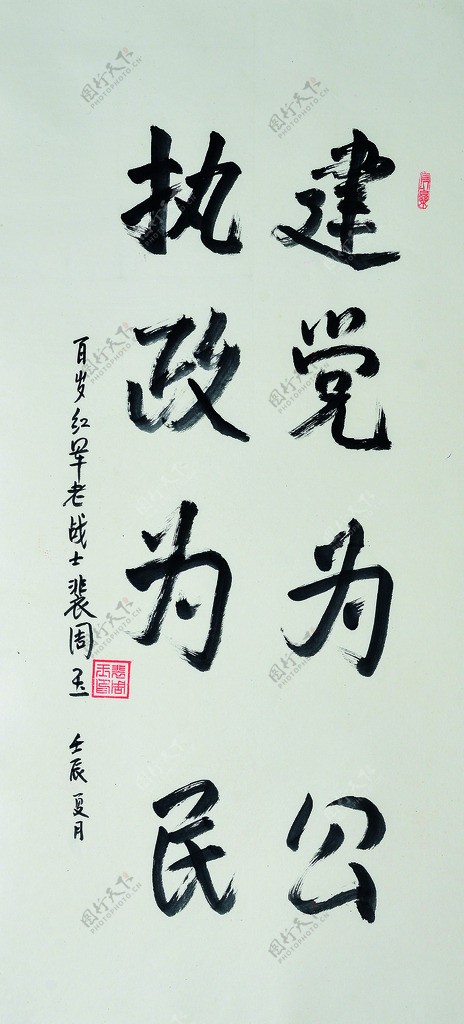 建党为公
执政为民
百岁红军老战士裴周玉
壬辰夏月
图行天下
PHOTOPHOTO.CN